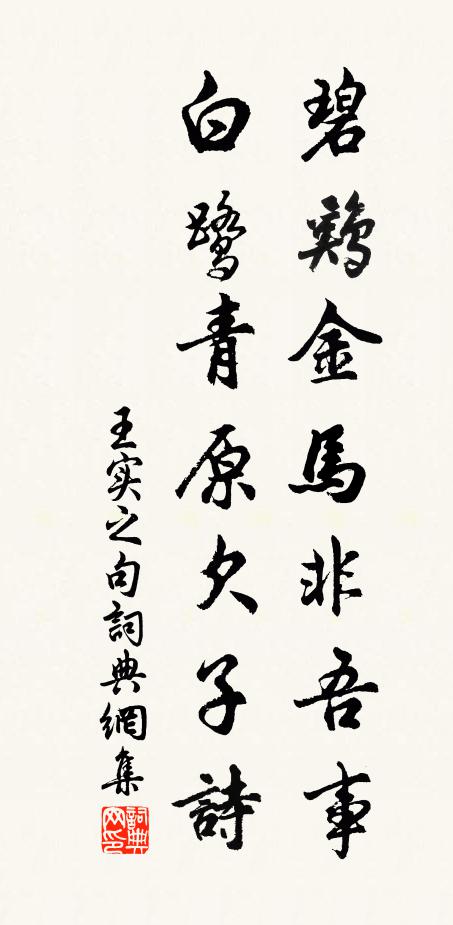 碧鷄金馬非吾事
白鷺青原欠子詩
王实之句詞典網集
詞典网印